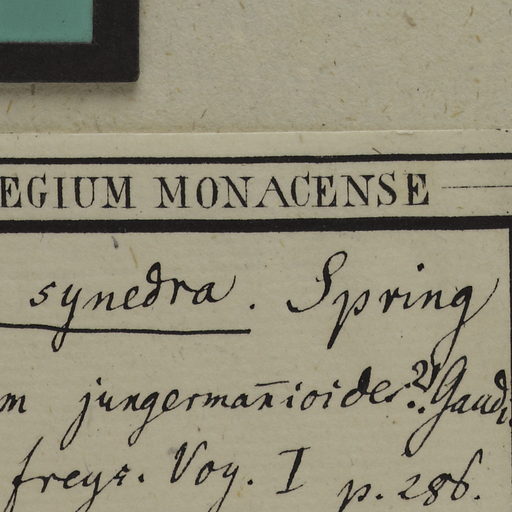 EGIUM MONACENSE
synedra. Spring
m jungermañioides.? Gaudi
freyz. Voy. I p. 286.